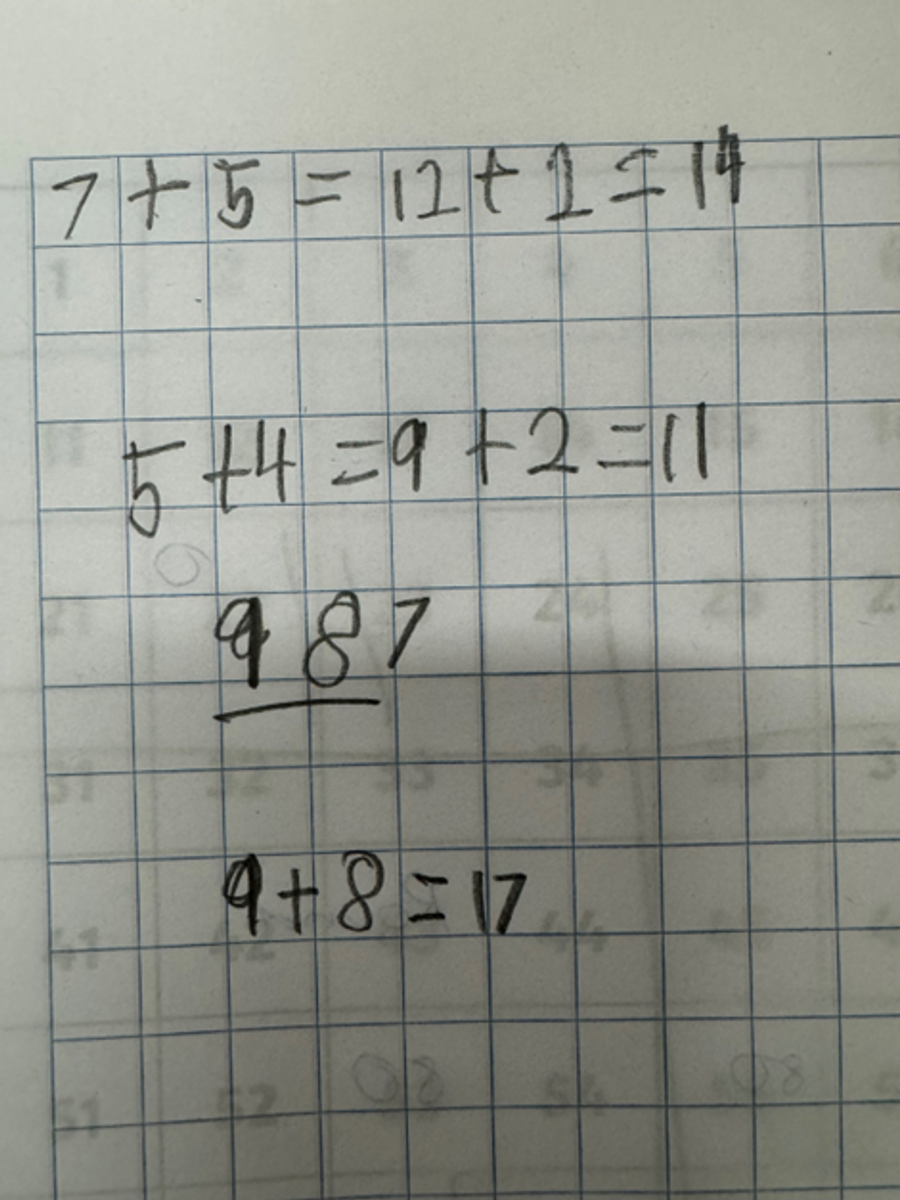 7 + 5 = 12 + 2 = 14
5 + 4 = 9 + 2 = 11
9 8 7
9 + 8 = 17